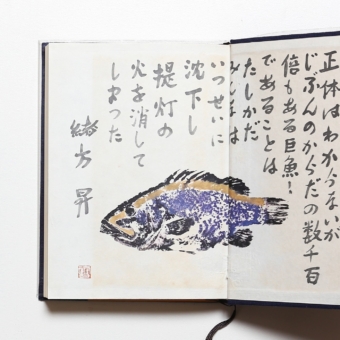 正体はわからないが
じぶんのからだの数千百
倍もある巨魚！
であることは
たしかだ
みんなは
いっせいに
沈下し
提灯の
火を消して
しまった
緒方昇